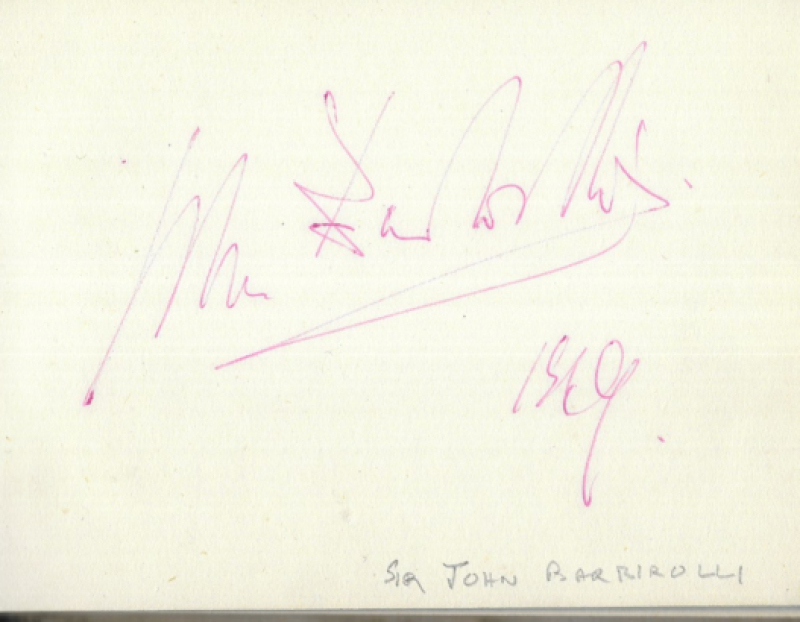 John Barbirolli
1969.
SIR JOHN BARBIROLLI